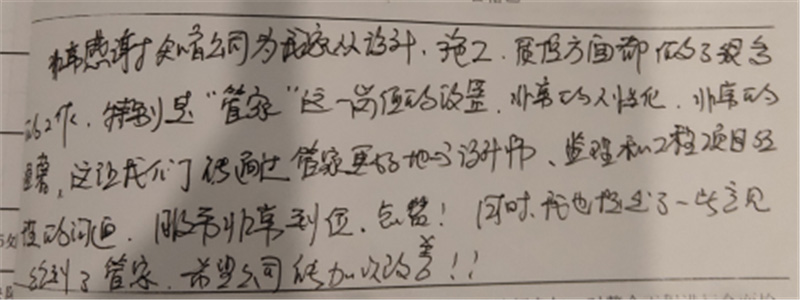 非常感谢贵公司为我家从设计、施工、质保方面都做了很多
的工作。特别是“管家”这一岗位的设置,非常的人性化,非常的
重要,这让我们能通过管家更好地与设计师、监理和工程项目经
理的沟通。服务非常到位,点赞!同时,我也提出了一些意见
给到了管家,希望公司能加以改善!!